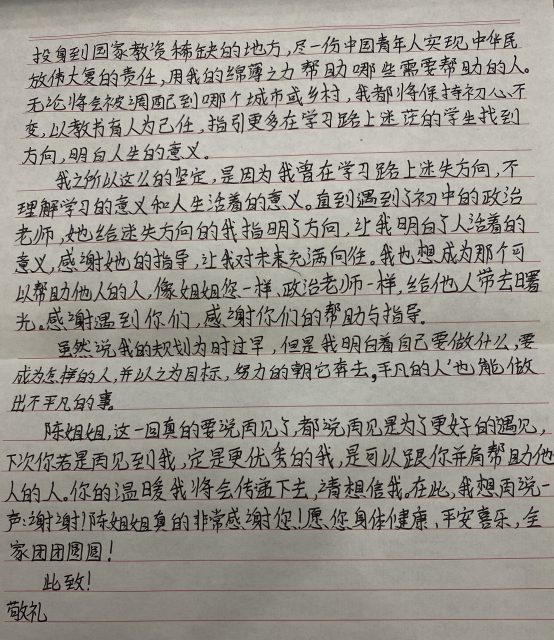 投身到国家教资稀缺的地方,尽一份中国青年人实现中华民
放伟大复的责任,用我的绵薄之力帮助哪些需要帮助的人。
无论将会被调配到哪个城市或乡村,我都将保持初心不
变,以教书育人为己任,指引更多在学习路上迷茫的学生找到
方向,明白人生的意义。
我之所以这么的坚定,是因为我曾在学习路上迷失方向,不
理解学习的意义和人生活着的意义。直到遇到了初中的政治
老师,她给迷失方向的我指明了方向,让我明白了人活着的
意义,感谢她的指导,让我对未来充满向往。我也想成为那个可
以帮助他人的人,像姐姐您一样、政治老师一样,给他人带去曙
光。感谢遇到你们,感谢你们的帮助与指导。
虽然说我的规划为时过早,但是我明白着自己要做什么,要
成为怎样的人,并以之为目标,努力的朝它奔去。平凡的人也能做
出不平凡的事。
陈姐姐,这一回真的要说再见了,都说再见是为了更好的遇见,
下次你若是再见到我,定是更优秀的我,是可以跟你并肩帮助他
人的人。你的温暖我将会传递下去,请相信我。在此,我想再说一
声:谢谢!陈姐姐真的非常感谢您!愿您身体健康、平安喜乐,全
家团团圆圆!
此致!
敬礼